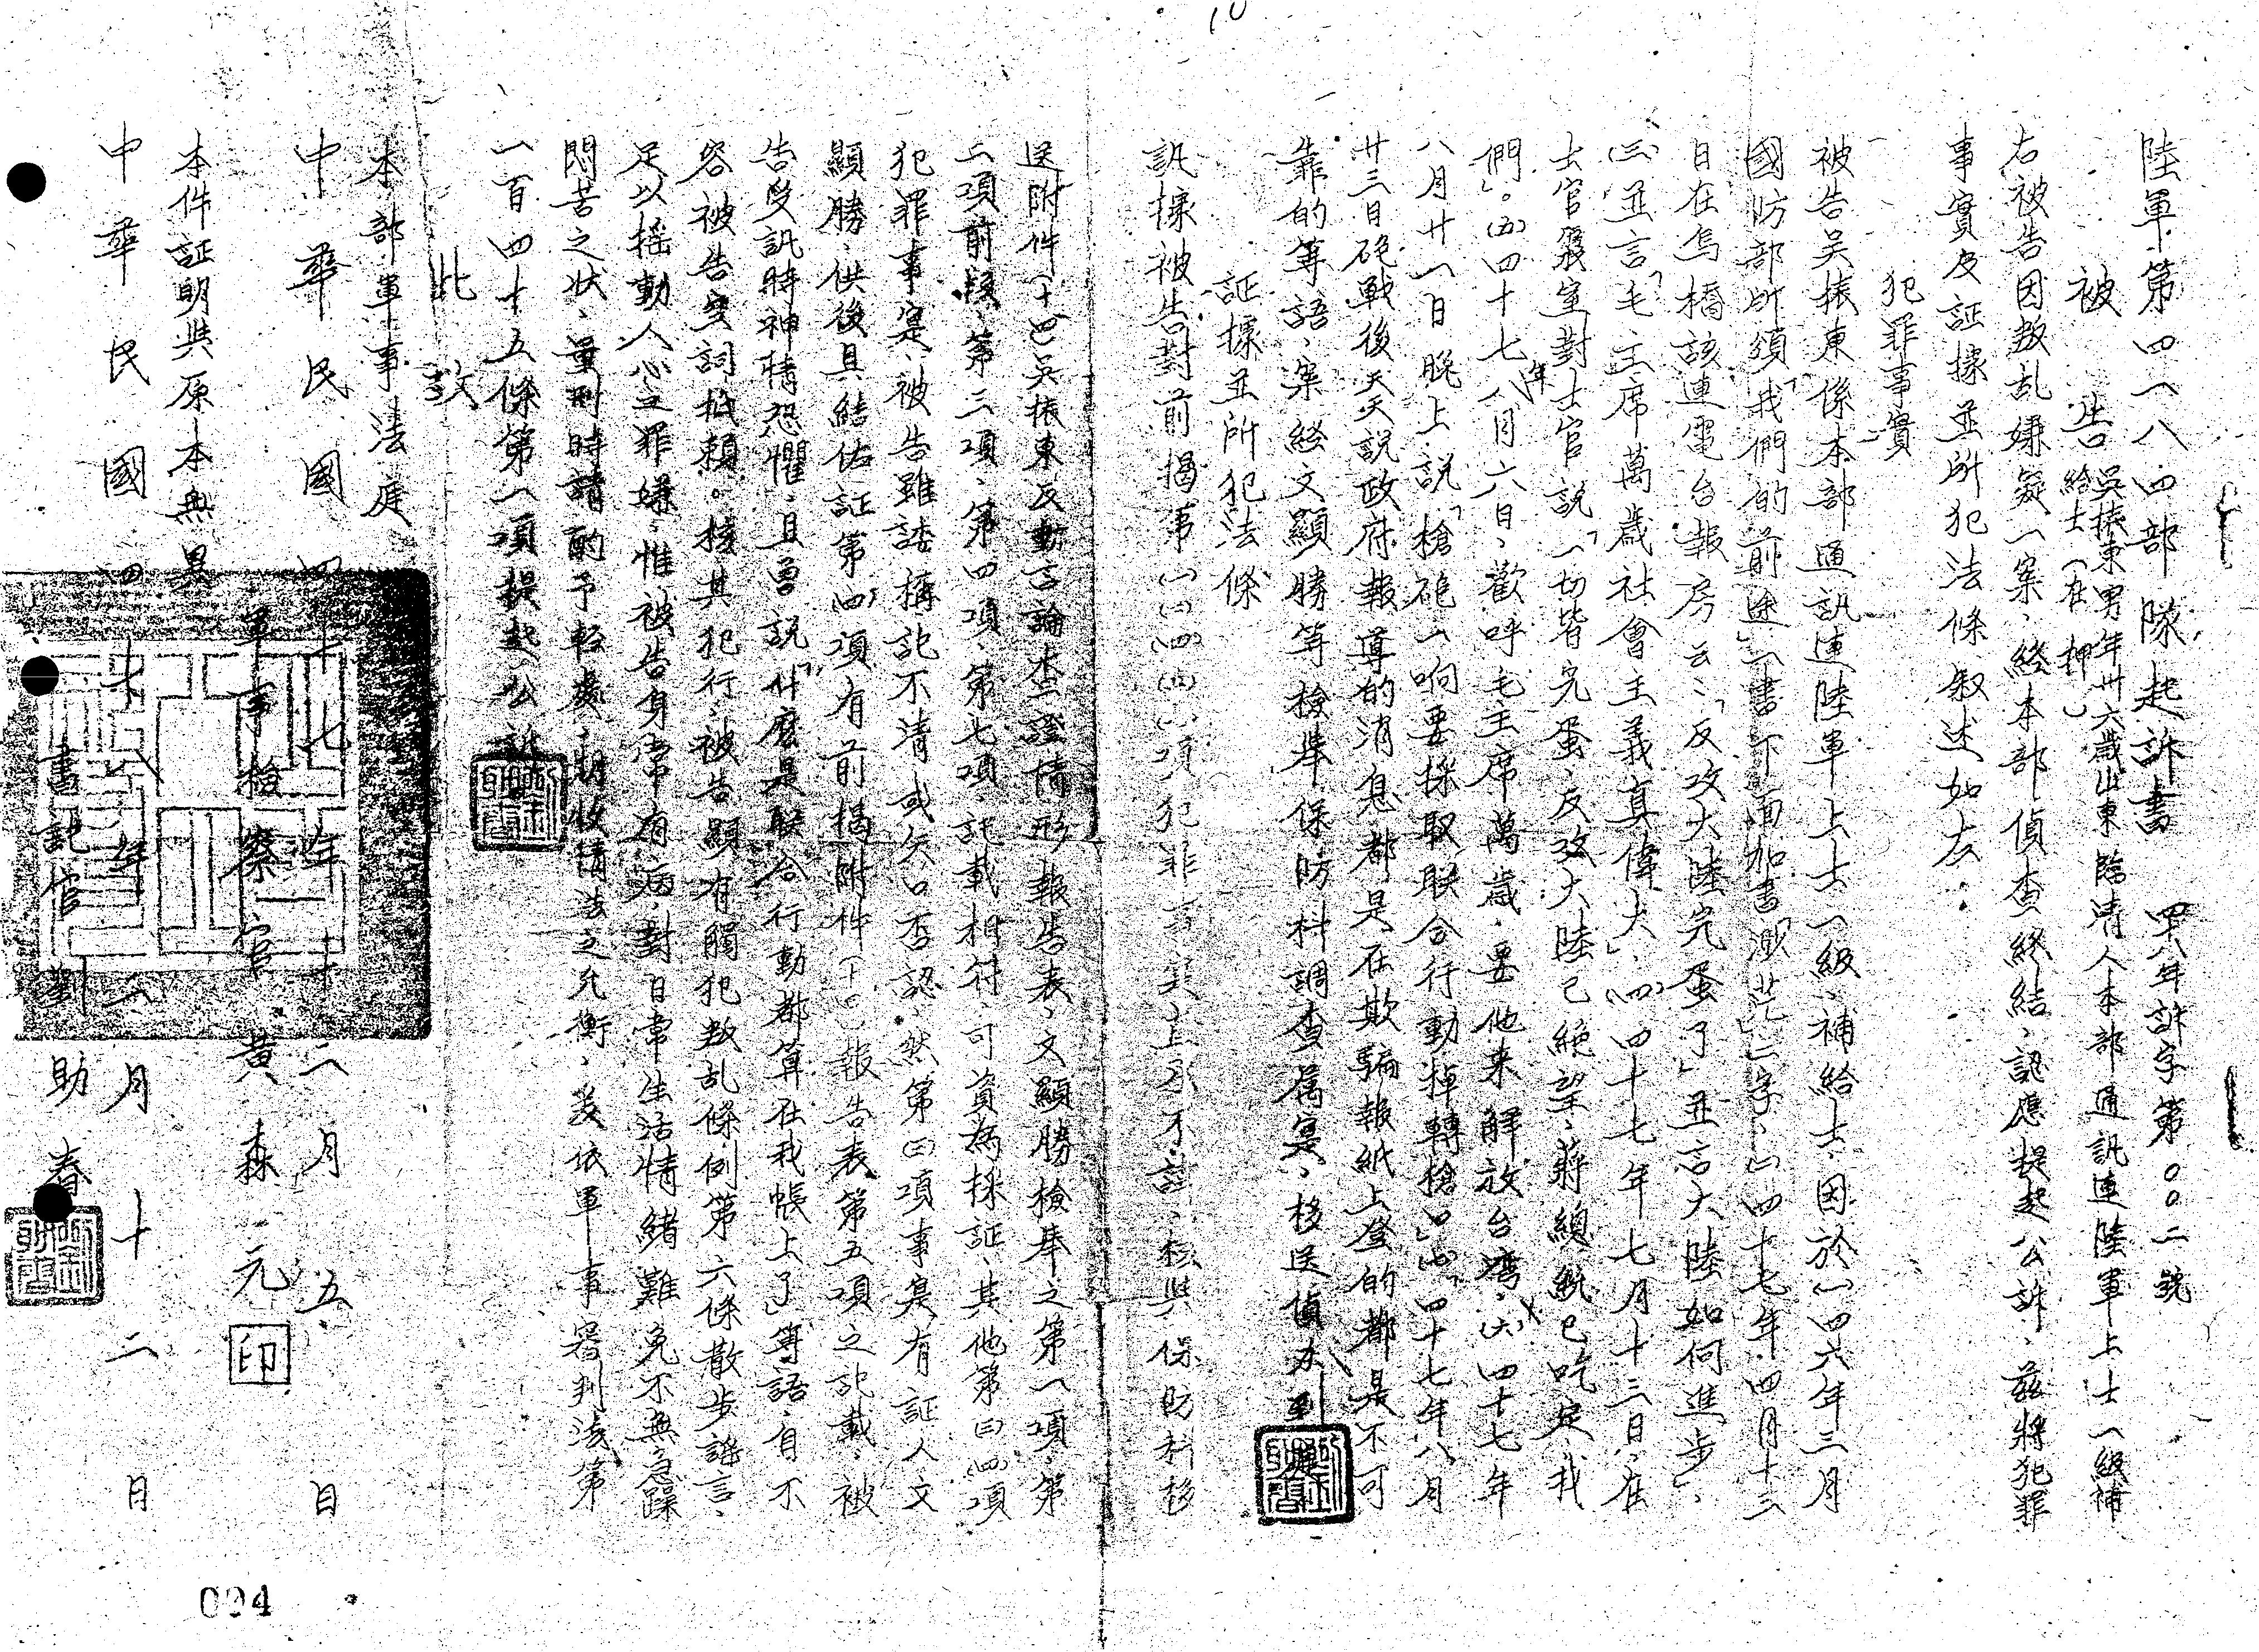 陸軍第四一八四部隊起訴書　四八年訴字第〇〇二號
被告　吳振東男年卅六歲山東臨清人本部通訊連陸軍上士一級補
給士（在押）
右被告因叛乱嫌疑一案、経本部偵查終結、認應提起公訴、茲將犯罪
事實及証據並所犯法條叙述如左：
犯罪事實
被告吳振東係本部通訊連陸軍上士一級補給士、因於(一)四六年三月
國防部所頒「我們的前途」一書下面加書「渺茫」二字、(二)四十七年四月十三
日在烏橋該連電台報房云：「反攻大陸完蛋了」並言大陸如何進步」、
(三)並言「毛主席萬歲社會主義真偉大」、(四)四十七年七月十三日、在
士官寢室對士官說「一切皆完蛋、反攻大陸已絕望、蔣總統已吃定我
們」。(五)四十七年八月六日、歡呼毛主席萬歲、要他來解放台灣、(六)四十七年
八月廿一日晚上說「槍砲一响要採取联合行動掉轉槍口」(七)四十七年八月
廿三日砲戰後天天説政府報導的消息都是在欺騙報紙上登的都是不可
靠的等語、案経文顯勝等檢舉保防科調查属寔、移送偵办到
証據並所犯法條
訊據被告對前揭第(一)(二)(四)項犯罪事實上不諱、核與保防科移
送附件(十四)吳振東反動言論查證情形報告表、文顯勝檢舉之第一項、第
二項前段、第三項、第四項、第七項、記載相符、可資為採証、其他第(三)(四)項
犯罪事寔、被告雖諉稱記不清或矢口否認、然第(三)項事寔有証人文
顯勝、供後具結佐証第(四)項有前揭附件(十四)報告表第五項之記載、被
告受訊時神情恐懼、且曾說「什麼是联合行動都算在我帳上了」等語、自不
容被告空詞抵賴。核其犯行、被告顯有觸犯叛乱條例第六條散步謠言、
足以搖動人心之罪嫌、惟被告身常有病、對日常生活情緒難免不無急躁
悶苦之狀、量刑時請酌予輕處、期收情法之允衡、爰依軍事審判法第
一百四十五條第一項提起公訴
此致
本部軍事法庭
中華民國四十七年十二月五日
軍事檢察官　黃森元　印
本件証明與原本無異
中華民國四十八年二月十二日
書記官　劉助春
094